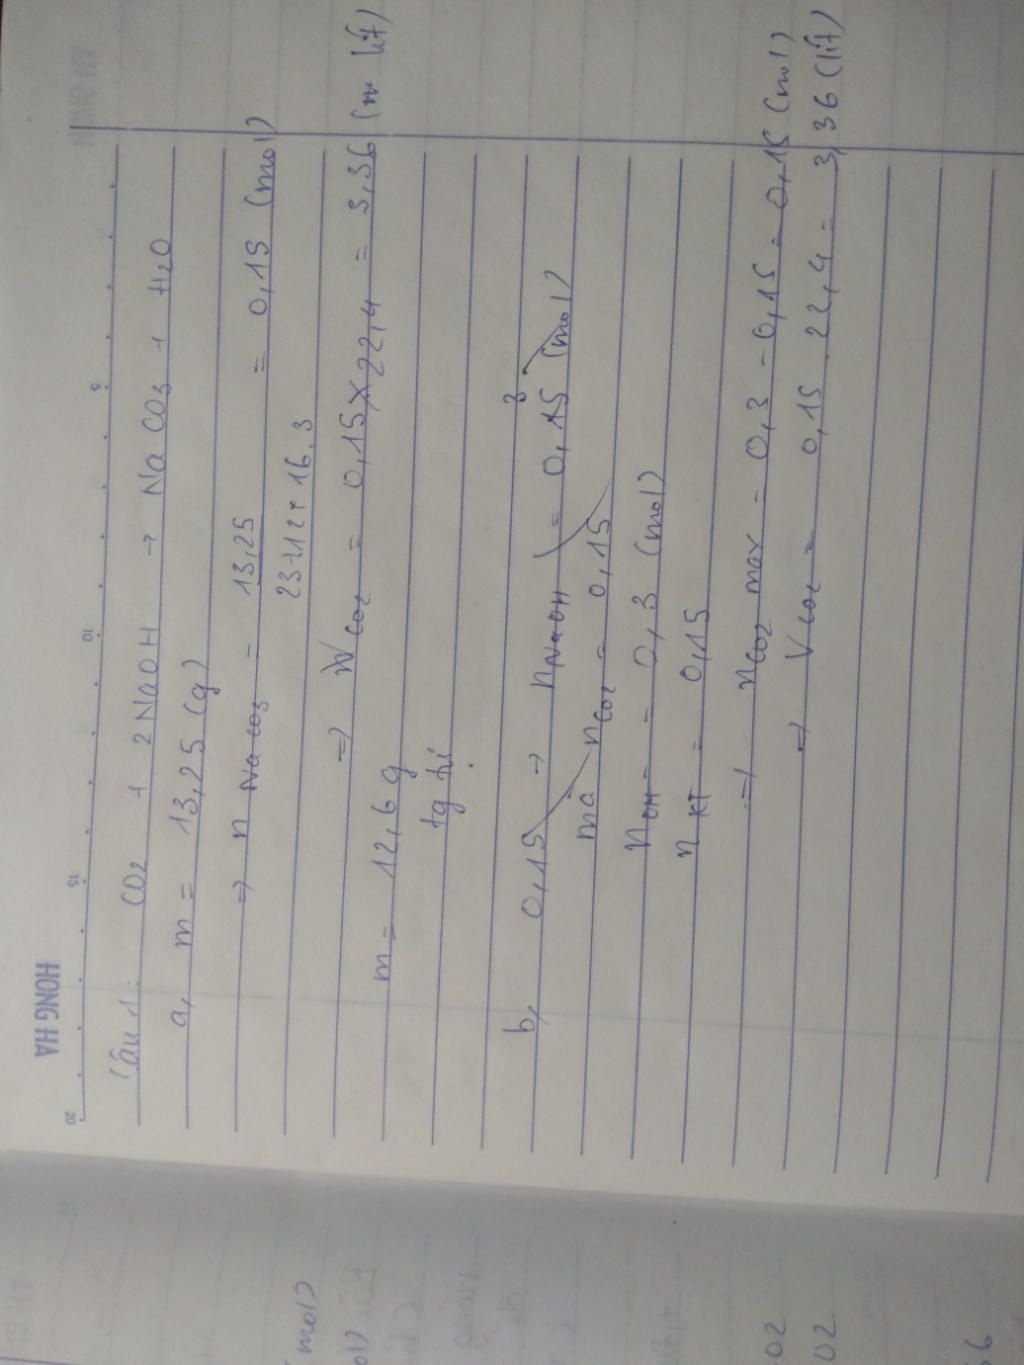 HONG HA
20 15 10 5
Câu 1: CO2 + 2NaOH → NaCO3 + H2O
a, m = 13,25 (g)
=> n NaCO3 = 13,25 = 0,15 (mol)
23+12+16.3
=> VCO2 = 0,15 x 22,4 = 3,36 (lít)
m = 12,6 g
tg tự
b, 0,15 → nNaOH = 0,15 (mol)
3
mà nCO2 = 0,15
nOH- = 0,3 (mol)
n KT = 0,15
=> nCO2 max = 0,3 - 0,15 = 0,15 (mol)
=> VCO2 = 0,15 . 22,4 = 3,36 (lít)
mol)
ol)
O2
O2
6